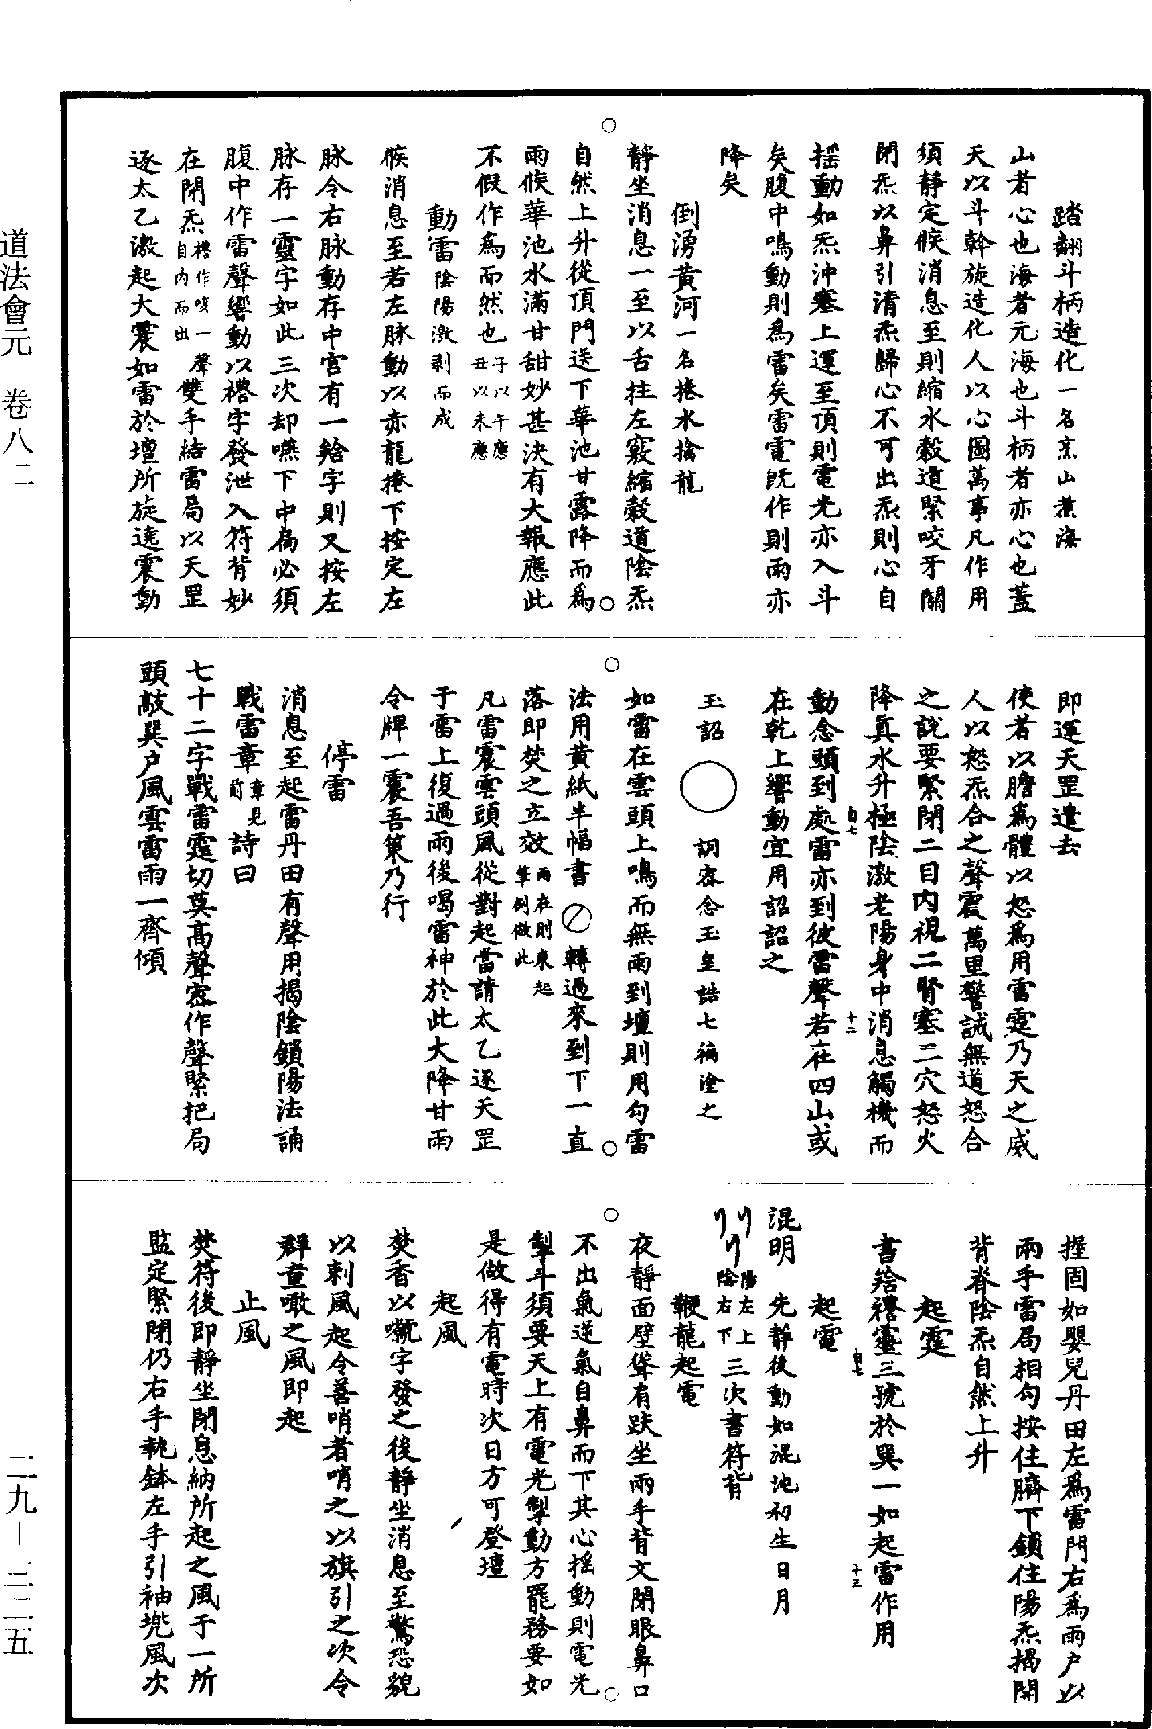 道法會元　卷八二
踏翻斗柄造化一名烹山煮海
山者心也海者元海也斗柄者亦心也蓋
天以斗幹旋造化人以心圖萬事凡作用
須靜定候消息至則縮水穀道緊咬牙關
閉炁以鼻引清炁歸心不可出炁則心自
搖動如炁沖塞上運至頂則電光亦入斗
矣腹中鳴動則為雷矣雷電既作則雨亦
降矣
倒湧黃河一名捲水擒龍
靜坐消息一至以舌拄左竅縮穀道陰炁
自然上升從頂門送下華池甘露降而為
雨候華池水滿甘甜妙甚決有大報應此
不假作為而然也子以午應丑以未應
動雷陰陽激剝而成
候消息至若左脉動以亦龍捲下按定左
脉令右脉動存中宮有一䤴字則又按左
脉存一靈字如此三次却嚥下中為必須
腹中作雷聲響動以禮字發泄入符背妙
在閉炁禮作唆一聲自內而出雙手結雷局以天罡
逐太乙激起大震如雷於壇所旋遶震動
即運天罡遣去
使者以膽為體以怒為用雷霆乃天之威
人以怒炁合之聲震萬里警誡無道怒合
之說要緊閉二目內視二腎塞二穴怒火
降真水升極陰激老陽身中消息觸機而
動念頭到處雷亦到彼雷聲若在四山或
在乾上響動宜用詔詔之
玉詔　○　詞密念玉皇誥七徧塗之
如雷在雲頭上鳴而無雨到壇則用勾雷
法用黃紙半幅書〇轉過來到下一直
落即焚之立效雨在則東起筆倒做此
凡雷震雲頭風從對起當請太乙逐天罡
于雷上復過雨後喝雷神於此大降甘雨
令牌一震吾菓乃行
停雷
消息至起雷丹田有聲用揭陰鎖陽法誦
戰雷章章見前詩曰
七十二字戰雷霆切莫高聲密作聲緊把局
頭敲巽戶風雲雷雨一齊傾
握固如嬰兒丹田左為雷門右為雨戶以
兩手雷局相勾按住臍下鎖住陽炁揭開
背脊陰炁自然上升
起霆
書䤴禮靈三號於巽一如起雷作用
起電
混明　先靜後動如混沌初生日月
陽左上陰右下三次書符背
鞭龍起電
夜靜面壁坐有趺坐兩手背文閉眼鼻口
不出氣逆氣自鼻而下其心搖動則電光
掣斗須要天上有電光掣動方罷務要如
是做得有電時次日方可登壇
起風
焚香以噦字發之後靜坐消息至驚恐貌
以刺風起令善哨者哨之以旗引之次令
群童噉之風即起
止風
焚符後即靜坐閉息納所起之風于一所
監定緊閉仍右手執鉢左手引袖兜風次
二九—三二五